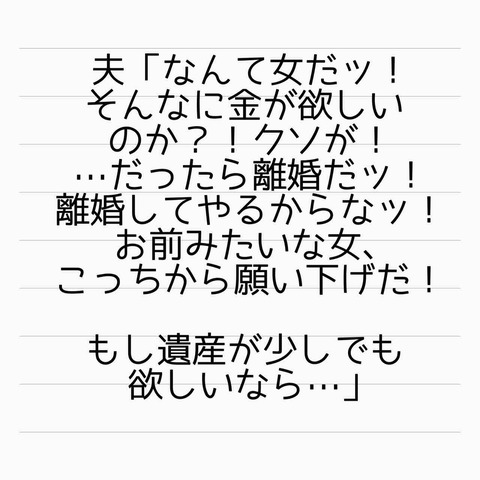 夫「なんて女だッ！
そんなに金が欲しい
のか？！クソが！
…だったら離婚だッ！
離婚してやるからなッ！
お前みたいな女、
こっちから願い下げだ！
もし遺産が少しでも
欲しいなら…」